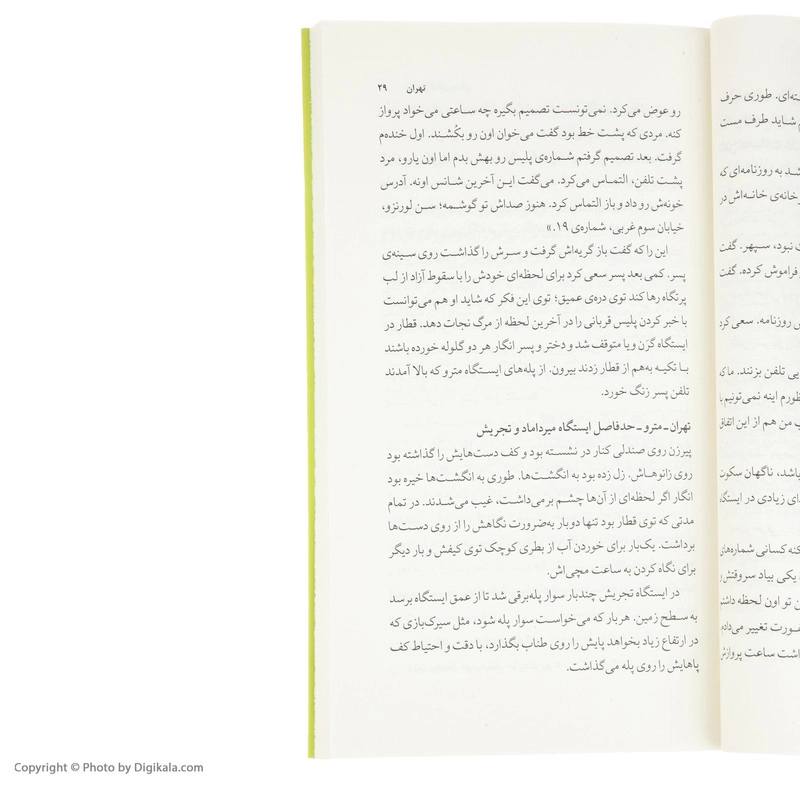 تهران ۲۹
رو عوض می‌کرد. نمی‌تونست تصمیم بگیره چه ساعتی می‌خواد پرواز
کنه. مردی که پشت خط بود گفت می‌خوان اون رو بکُشند. اول خنده‌م
گرفت. بعد تصمیم گرفتم شماره‌ی پلیس رو بهش بدم اما اون یارو، مرد
پشت تلفن، التماس می‌کرد. می‌گفت این آخرین شانس اونه. آدرس
خونه‌ش رو داد و باز التماس کرد. هنوز صداش تو گوشمه؛ سن لورنزو،
خیابان سوم غربی، شماره‌ی ۱۹.»
این را که گفت باز گریه‌اش گرفت و سرش را گذاشت روی سینه‌ی
پسر. کمی بعد پسر سعی کرد برای لحظه‌ای خودش را با سقوط آزاد از لب
پرتگاه رها کند توی دره‌ی عمیق؛ توی این فکر که شاید او هم می‌توانست
با خبر کردن پلیس قربانی را در آخرین لحظه از مرگ نجات دهد. قطار در
ایستگاه گرَن ویا متوقف شد و دختر و پسر انگار هر دو گلوله خورده باشند
با تکیه به‌هم از قطار زدند بیرون. از پله‌های ایستگاه مترو که بالا آمدند
تلفن پسر زنگ خورد.
تهران ـ مترو ـ حدفاصل ایستگاه میرداماد و تجریش
پیرزن روی صندلی کنار در نشسته بود و کف دست‌هایش را گذاشته بود
روی زانوهاش. زل زده بود به انگشت‌ها. طوری به انگشت‌ها خیره بود
انگار اگر لحظه‌ای از آن‌ها چشم برمی‌داشت، غیب می‌شدند. در تمام
مدتی که توی قطار بود تنها دوبار به‌ضرورت نگاهش را از روی دست‌ها
برداشت. یک‌بار برای خوردن آب از بطری کوچک توی کیفش و بار دیگر
برای نگاه کردن به ساعت مچی‌اش.
در ایستگاه تجریش چندبار سوار پله‌برقی شد تا از عمق ایستگاه برسد
به سطح زمین. هربار که می‌خواست سوار پله شود، مثل سیرک‌بازی که
در ارتفاع زیاد بخواهد پایش را روی طناب بگذارد، با دقت و احتیاط کف
پاهایش را روی پله می‌گذاشت.
طوری حرف
شاید طرف مست
به روزنامه‌ای که
خانه‌اش در
نبود، سپهر. گفت
فراموش کرده. گفت
روزنامه. سعی کرد
تلفن بزنند. ما که
اینه نمی‌تونیم
من هم از این اتفاق
ناگهان سکوت
زیادی در ایستگاه
کسانی شماره‌های
یکی بیاد سروقتش
تو اون لحظه
تغییر می‌دادم
ساعت پروازش
Copyright © Photo by Digikala.com